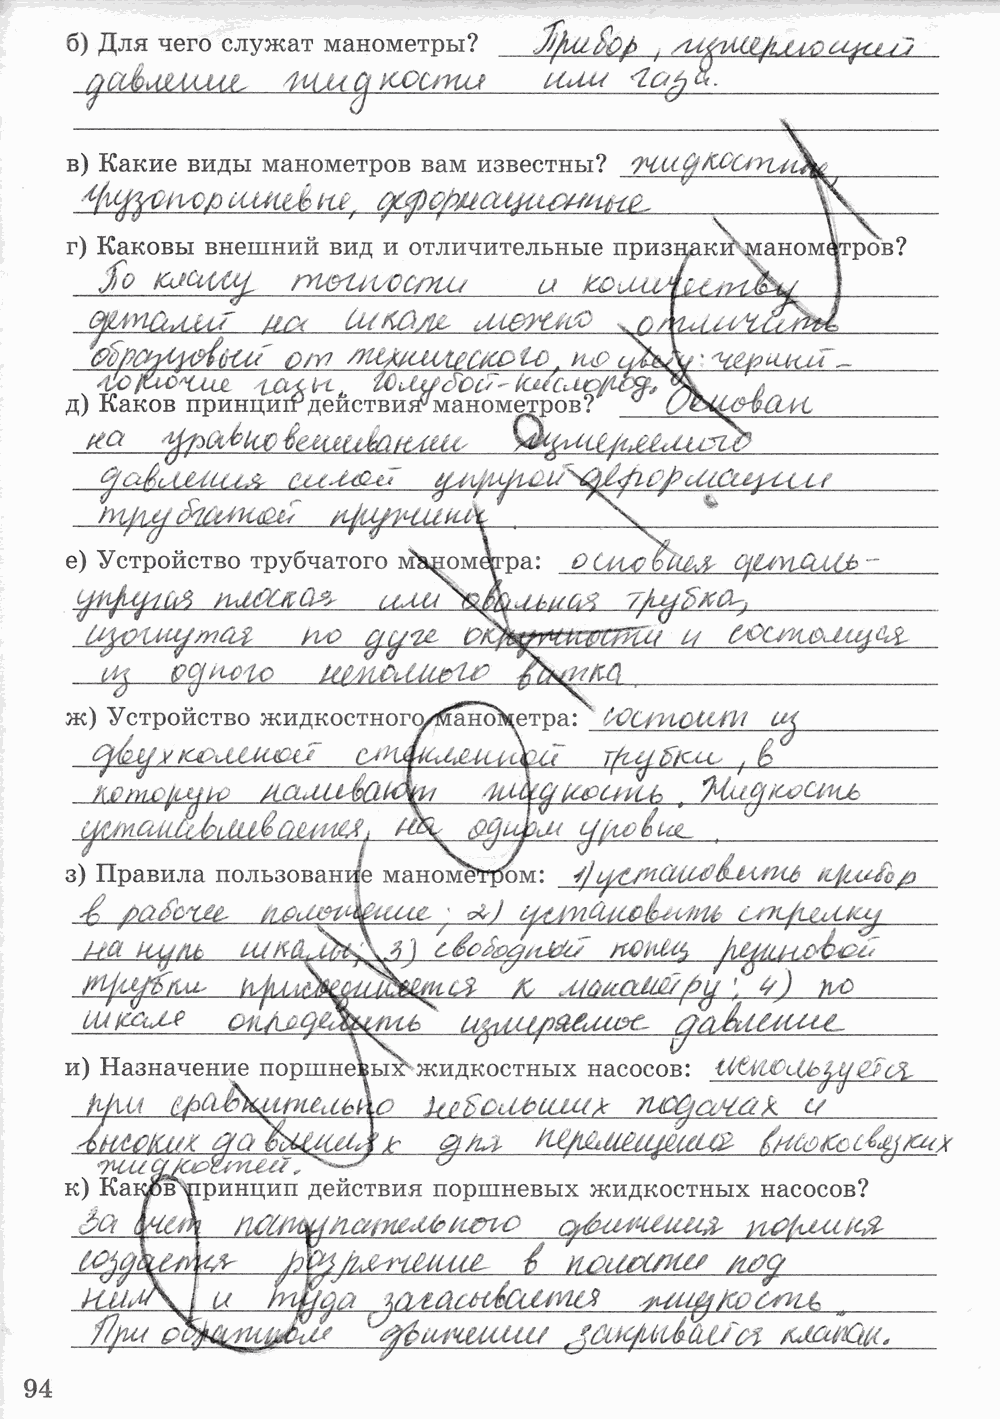 б) Для чего служат манометры? Прибор, измеряющий
давление жидкости или газа.
в) Какие виды манометров вам известны? жидкостные,
грузопоршневые, деформационные
г) Каковы внешний вид и отличительные признаки манометров?
По классу точности и количеству
деталей на шкале можно отличить
образцовый от технического, по цвету: черный –
горючие газы, голубой-кислород.
д) Каков принцип действия манометров? Основан
на уравновешивании измеряемого
давления силой упругой деформации
трубчатой пружины.
е) Устройство трубчатого манометра: основная деталь –
упругая плоская или овальная трубка,
изогнутая по дуге окружности и состоящая
из одного неполного витка.
ж) Устройство жидкостного манометра: состоит из
двухколеной стеклянной трубки, в
которую наливают жидкость. Жидкость
устанавливается на одном уровне.
з) Правила пользование манометром: 1) установить прибор
в рабочее положение; 2) установить стрелку
на нуль шкалы; 3) свободный конец резиновой
трубки присоединяется к манометру; 4) по
шкале определить измеряемое давление
и) Назначение поршневых жидкостных насосов: используется
при сравнительно небольших подачах и
высоких давлениях для перемещения высоковязких
жидкостей.
к) Каков принцип действия поршневых жидкостных насосов?
За счет поступательного движения поршня
создается разряжение в полости под
ним и туда засасывается жидкость.
При обратном движении закрывается клапан.
94